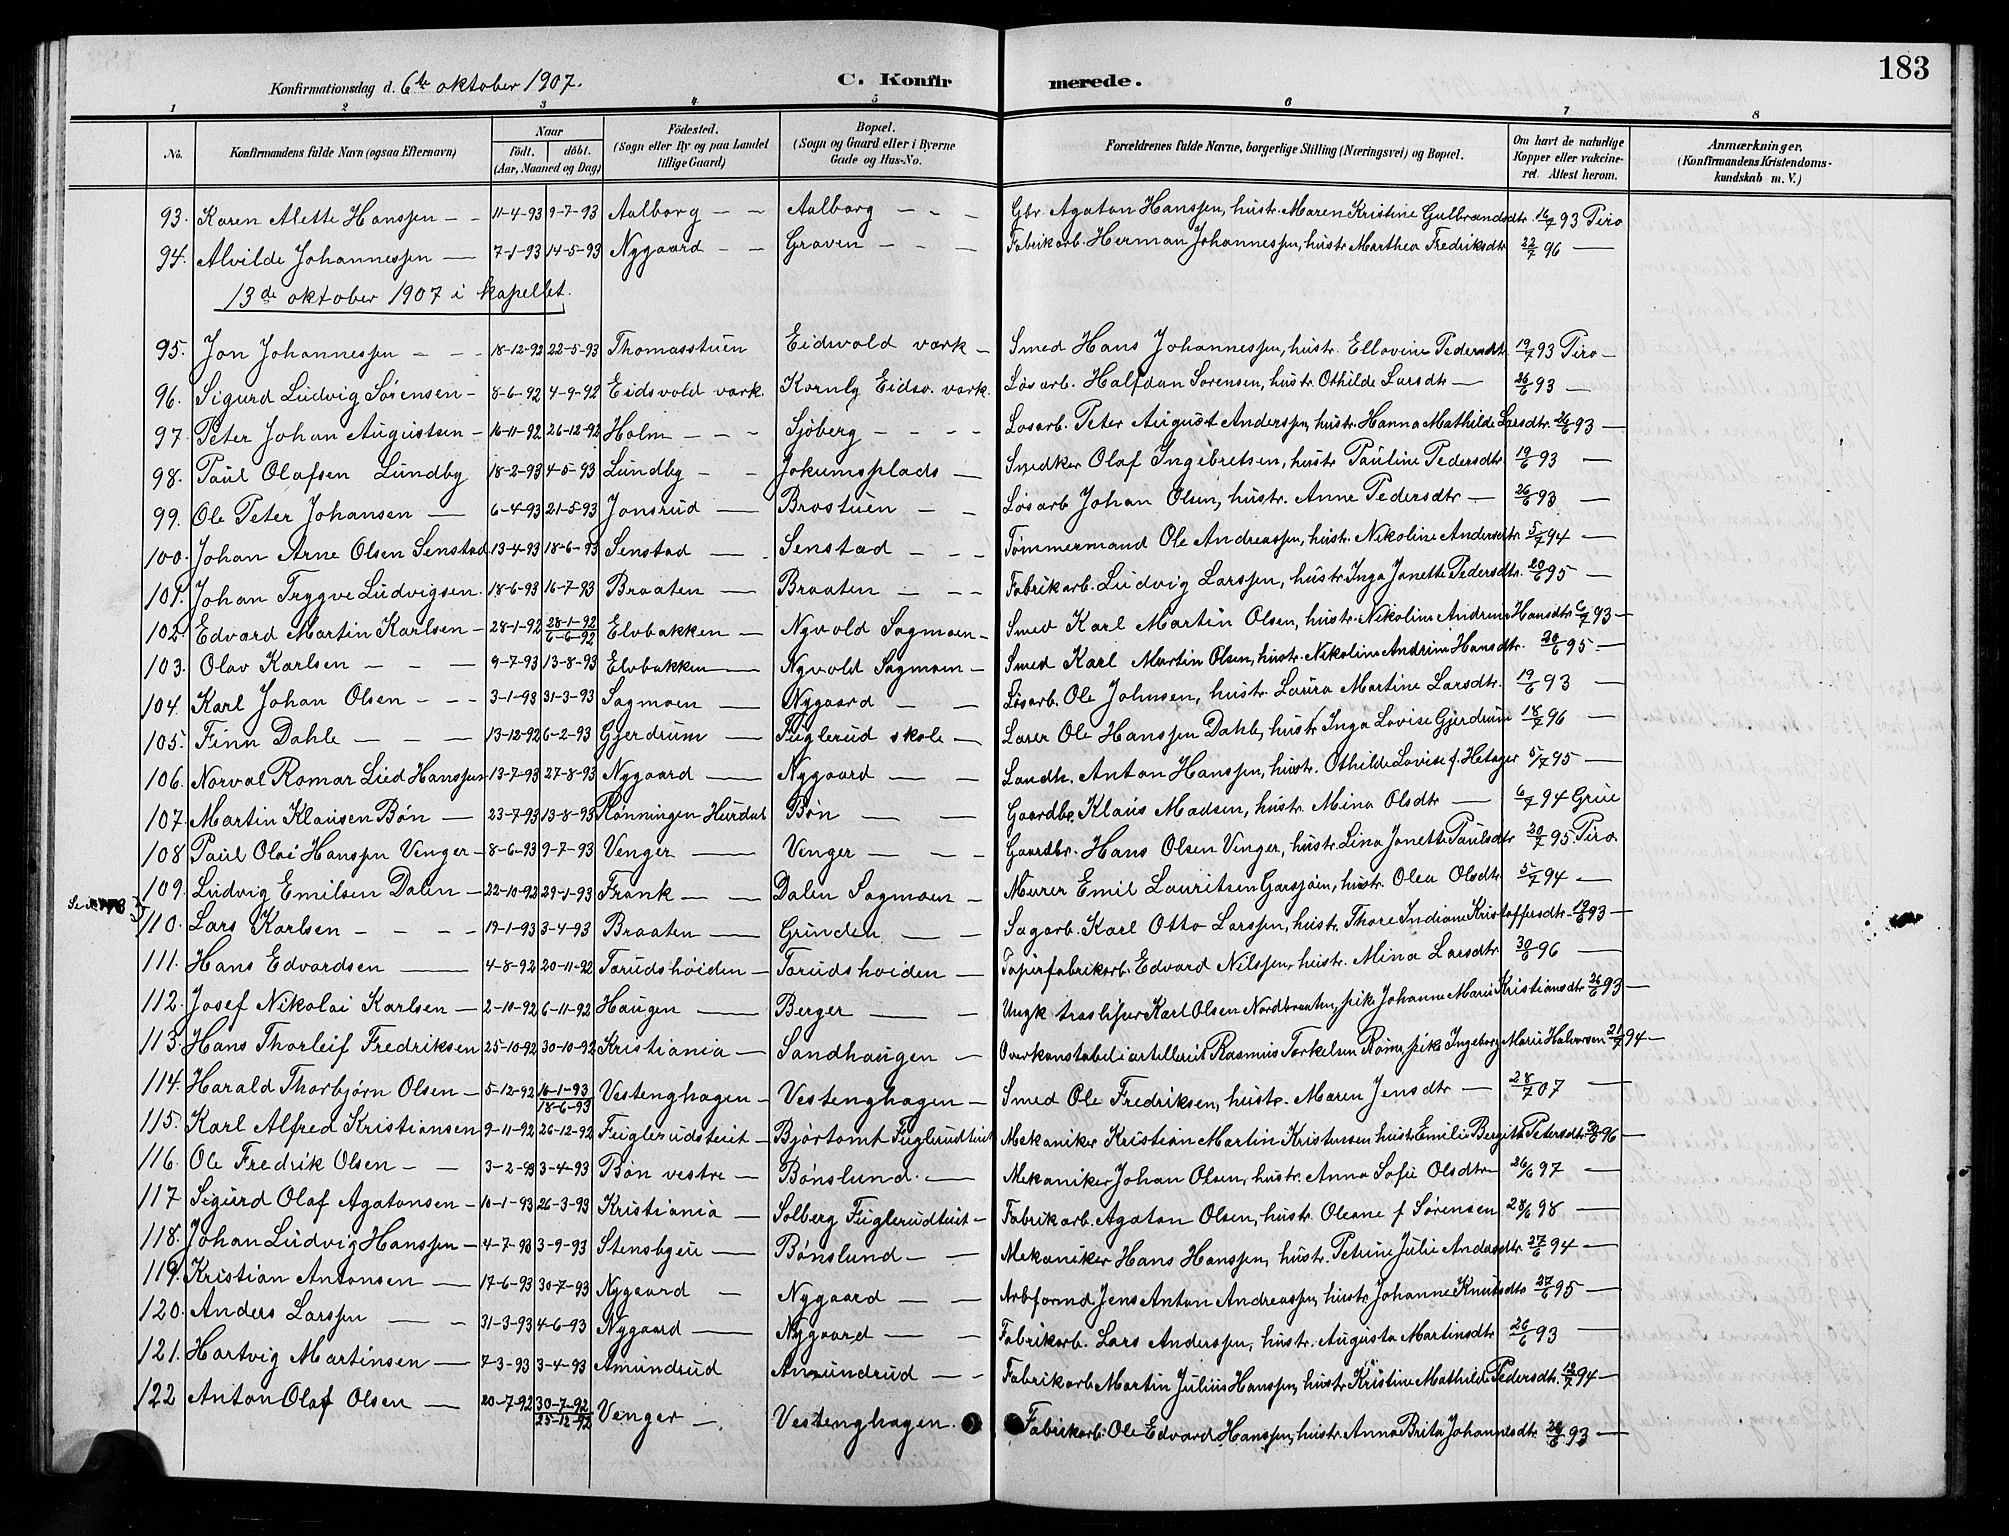 183
Konfirmationsdag d. 6te oktober 1907. C. Konfirmerede.
1 2 3 4 5 6 7 8
No. Konfirmandens fulde Navn (ogsaa Efternavn) Naar födt. döbt. (Aar, Maaned og Dag) Födested. (Sogn eller By og paa Landet tillige Gaard) Bopæl. (Sogn og Gaard eller i Byerne Gade og Hus-No. Forældrenes fulde Navne, borgerlige Stilling (Næringsvei) og Bopæl. Om havt de naturlige Kopper eller vakcineret. Attest herom. Anmærkninger, (Konfirmandens Kristendomskundskab m. V.)
93. Karen Alette Hanssen 11-4-93 9-7-93 Aalborg Aalborg Gbr. Agaton Hanssen, hustr. Maren Kristine Gulbrandsdtr. 16/7 93 Tiro
94. Alvilde Johannessen 7-1-93 14-5-93 Nygaard Graven Fabrikarb. Herman Johannessen, hustr Marthea Fredriksdtr 22/7 96 —
13de oktober 1907 i kapellet.
95. Jon Johannessen 18-12-92 22-5-93 Thomasstuen Eidsvold værk Smed Hans Johannessen, hustr. Ellovine Pedersdtr 19/7 93 Tiro
96. Sigurd Ludvig Sørensen 8-6-92 4-9-92 Eidsvold værk. Kornly Eidsv. værk. Løsarb. Halfdan Sørensen, hustr. Othilde Larsdtr 26/6 93 —
97. Peter Johan Augustsen 16-11-92 26-12-92 Holm Sjøberg Løsarb. Peter August Anderssen, hustr. Hanna Mathilde Larsdtr. 26/6 93 —
98. Paul Olafsen Lundby 18-2-93 4-5-93 Lundby Jokumsplads Snedker Olaf Ingebretsen, hustr Pauline Pedersdtr 19/6 93 —
99. Ole Peter Johansen 6-4-93 21-5-93 Jonsrud Brostuen Løsarb Johan Olsen, hustr. Anne Pedersdtr 26/6 93 —
100. Johan Arne Olsen Senstad 13-4-93 18-6-93 Senstad Senstad Tømmermand Ole Andreassen, hustr. Nikoline Andersdtr 5/7 94 —
101. Johan Trygve Ludvigsen. 18-6-93 16-7-93 Braaten Braaten Fabrikarb. Ludvig Larssen, hustr Inga Jonette Pedersdtr. 20/6 95 —
102. Edvard Martin Karlsen 28-1-92 28-1-92 6-6-92 Elvbakken Nyvold Sagmoen Smed Karl Martin Olsen, hustr. Nikoline Andrine Hansdtr 6/7 93 —
103. Olav Karlsen 9-7-93 13-8-93 Elvbakken Nyvold Sagmoen Smed Karl Martin Olsen, hustr. Nikoline Andrine Hansdtr. 20/6 95 —
104. Karl Johan Olsen 3-1-93 31-3-93 Sagmoen Nygaard Løsarb. Ole Johnsen, hustr. Laura Martine Larsdtr. 19/6 93 —
105. Finn Dahle 13-12-92 6-2-93 Gjerdrum Fuglerud skole Lærer Ole Hanssen Dahle, hustr Inga Lovise Gjerdrum 18/7 96 —
106. Norval Romar Lied Hanssen 13-7-93 27-8-93 Nygaard Nygaard Landh. Anton Hanssen, hustr. Othilde Lovise f. Hetager 5/7 95 —
107. Martin Klausen Bøn 23-7-93 13-8-93 Rønningen Hurdal Bøn Gaardbr. Klaus Madsen, hustr. Mina Olsdtr 6/7 94 Grue
108 Paul Olai Hanssen Venger 8-6-93 9-7-93 Venger Venger Gaardbr. Hans Olsen Venger, hustr Lina Jonette Paulsdtr 20/7 95. Tiro.
109. Ludvig Emilsen Dalen 22-10-92 29-1-93 Frank Dalen Sagmoen Murer Emil Lauritsen Garsjøen, hustr. Olea Olsdtr 5/7 94 —
110. Lars Karlsen 19-1-93 3-4-93 Braaten Grinden Sagarb. Karl Otto Larssen, hustr. Thore Indiane Kristoffersdtr. 19/6 93 —
111. Hans Edvardsen 4-8-92 20-11-92 Tarudshøiden Tarudshøiden Papirfabrikarb. Edvard Nilssen, hustr. Mina Larsdtr 30/6 96 —
112. Josef Nikolai Karlsen 2-10-92 6-11-92 Haugen Berger Ungk træsliper Karl Olsen Nordbraaten, pike Johanne Marie Kristiansdtr 26/6 93 —
113. Hans Thorleif Fredriksen 25-10-92 30-10-92 Kristiania Sandhaugen Overkonstabel i artilleriet Rasmus Torkelsen Røine, pike Ingeborg Marie Halvorsen 21/7 94 —
114. Harald Thorbjørn Olsen 5-12-92 16-1-93 18-6-93 Vestenghagen Vestenghagen Smed Ole Fredriksen, hustr. Maren Jensdtr 28/7 07 —
115. Karl Alfred Kristiansen 9-11-92 26-12-92 Fuglerudsteiet Bjørtomt Fuglerudteiet Mekaniker Kristian Martin Kristensen hustr Emilie Bergitte Petersdtr 30/6 96 —
116. Ole Fredrik Olsen 3-2-93 3-4-93 Bøn vestre Bønslund. Mekaniker Johan Olsen, hustr. Anna Sofie Olsdtr 26/6 97 —
117 Sigurd Olaf Agatonsen 10-1-93 26-3-93 Kristiania Solberg Fuglerudteiet Fabrikarb. Agaton Olsen, hustr. Oleane f Sørensen 28/6 98 —
118. Johan Ludvig Hanssen 4-7-93 3-9-93 Stensbyeie Bønslund Mekaniker Hans Hanssen, hustr. Petrine Julie Andersdtr 27/6 94 —
119. Kristian Antonsen 17-6-93 30-7-93 Nygaard Nygaard Arbformd. Jens Anton Andreassen, hustr Johanne Knutsdtr 27/6 95 —
120. Anders Larssen 31-3-93 4-6-93 Nygaard Nygaard Fabrikarb. Lars Anderssen, hustr. Augusta Martinsdtr 26/6 93 —
121. Hartvig Martinsen 7-3-93 3-4-93 Amundrud Amundrud Fabrikarb Martin Julius Hanssen, hustr Kristine Mathilde Pedersdtr. 12/7 94 —
122 Anton Olaf Olsen 20-7-92 30-7-92 25-12-92 Venger Vestenghagen. Fabrikarb. Ole Edvard Hanssen, hustr. Anne Brita Johannesdtr 26/6 93 —